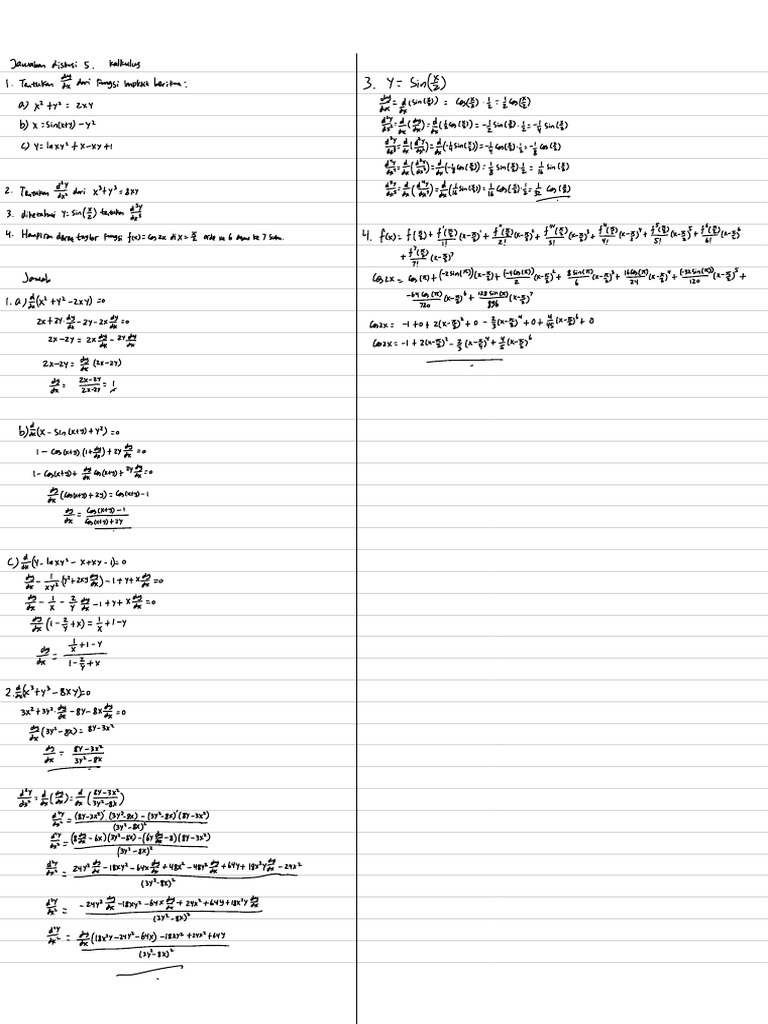 Jawaban diskusi 5. Kalkulus
1. Tentukan dy/dx dari fungsi implisit berikut:
a) x² + y² = 2xy
b) x = sin(x+y) - y²
c) y = ln xy² + x - xy + 1
2. Tentukan d²y/dx² dari x³ + y³ = 8xy
3. diketahui y = sin(x/2) tentukan d⁵y/dx⁵
4. Hampiran deret taylor fungsi f(x) = cos 2x di x = π/2 orde ke 6
Jawab
1. a) d/dx (x² + y² - 2xy) = 0
2x + 2y · dy/dx - 2y - 2x dy/dx = 0
2x - 2y = 2x dy/dx - 2y dy/dx
2x - 2y = dy/dx (2x - 2y)
dy/dx = (2x - 2y)/(2x - 2y) = 1
b) d/dx (x - sin(x+y) + y²) = 0
1 - cos(x+y) (1 + dy/dx) + 2y dy/dx = 0
1 - cos(x+y) + dy/dx cos(x+y) + 2y dy/dx = 0
dy/dx (cos(x+y) + 2y) = cos(x+y) - 1
dy/dx = (cos(x+y) - 1)/(cos(x+y) + 2y)
c) d/dx (y - ln xy² - x + xy - 1) = 0
dy/dx - 1/(xy²) (y² + 2xy dy/dx) - 1 + y + x dy/dx = 0
dy/dx - 1/x - 2/y dy/dx - 1 + y + x dy/dx = 0
dy/dx (1 - 2/y + x) = 1/x + 1 - y
dy/dx = (1/x + 1 - y)/(1 - 2/y + x)
2. d/dx (x³ + y³ - 8xy) = 0
3x² + 3y² · dy/dx - 8y - 8x dy/dx = 0
dy/dx (3y² - 8x) = 8y - 3x²
dy/dx = (8y - 3x²)/(3y² - 8x)
d²y/dx² = d/dx (dy/dx) = d/dx ((8y - 3x²)/(3y² - 8x))
d²y/dx² = ((8y - 3x²)' (3y² - 8x) - (3y² - 8x)' (8y - 3x²))/(3y² - 8x)²
d²y/dx² = ((8 dy/dx - 6x)(3y² - 8x) - (6y dy/dx - 8)(8y - 3x²))/(3y² - 8x)²
d²y/dx² = (24y² dy/dx - 18xy² - 64x dy/dx + 48x² - 48y² dy/dx + 64y + 18x²y dy/dx - 24x²)/(3y² - 8x)²
d²y/dx² = (-24y² dy/dx - 18xy² - 64x dy/dx + 24x² + 64y + 18x²y dy/dx)/(3y² - 8x)²
d²y/dx² = (dy/dx (18x²y - 24y² - 64x) - 18xy² + 24x² + 64y)/(3y² - 8x)²
3. y = sin(x/2)
dy/dx = d/dx (sin(x/2)) = cos(x/2) · 1/2 = 1/2 cos(x/2)
d²y/dx² = d/dx (dy/dx) = d/dx (1/2 cos(x/2)) = -1/2 sin(x/2) · 1/2 = -1/4 sin(x/2)
d³y/dx³ = d/dx (d²y/dx²) = d/dx (-1/4 sin(x/2)) = -1/4 cos(x/2) · 1/2 = -1/8 cos(x/2)
d⁴y/dx⁴ = d/dx (d³y/dx³) = d/dx (-1/8 cos(x/2)) = 1/8 sin(x/2) · 1/2 = 1/16 sin(x/2)
d⁵y/dx⁵ = d/dx (d⁴y/dx⁴) = d/dx (1/16 sin(x/2)) = 1/16 cos(x/2) · 1/2 = 1/32 cos(x/2)
4. f(x) = f(π/2) + f'(π/2)/1! (x-π/2)¹ + f''(π/2)/2! (x-π/2)² + f'''(π/2)/3! (x-π/2)³ + f⁴(π/2)/4! (x-π/2)⁴ + f⁵(π/2)/5! (x-π/2)⁵ + f⁶(π/2)/6! (x-π/2)⁶
+ f⁷(π/2)/7! (x-π/2)⁷
cos 2x = cos(π) + (-2 sin(π))(x-π/2) + (-4cos(π))/2 (x-π/2)² + 8 sin(π)/6 (x-π/2)³ + 16cos(π)/24 (x-π/2)⁴ + (-32 sin(π))/120 (x-π/2)⁵ +
-64 cos(π)/720 (x-π/2)⁶ + 128 sin(π)/896 (x-π/2)⁷
cos 2x = -1 + 0 + 2(x-π/2)² + 0 - 2/3 (x-π/2)⁴ + 0 + 4/45 (x-π/2)⁶ + 0
cos 2x = -1 + 2(x-π/2)² - 2/3 (x-π/2)⁴ + 4/5 (x-π/2)⁶